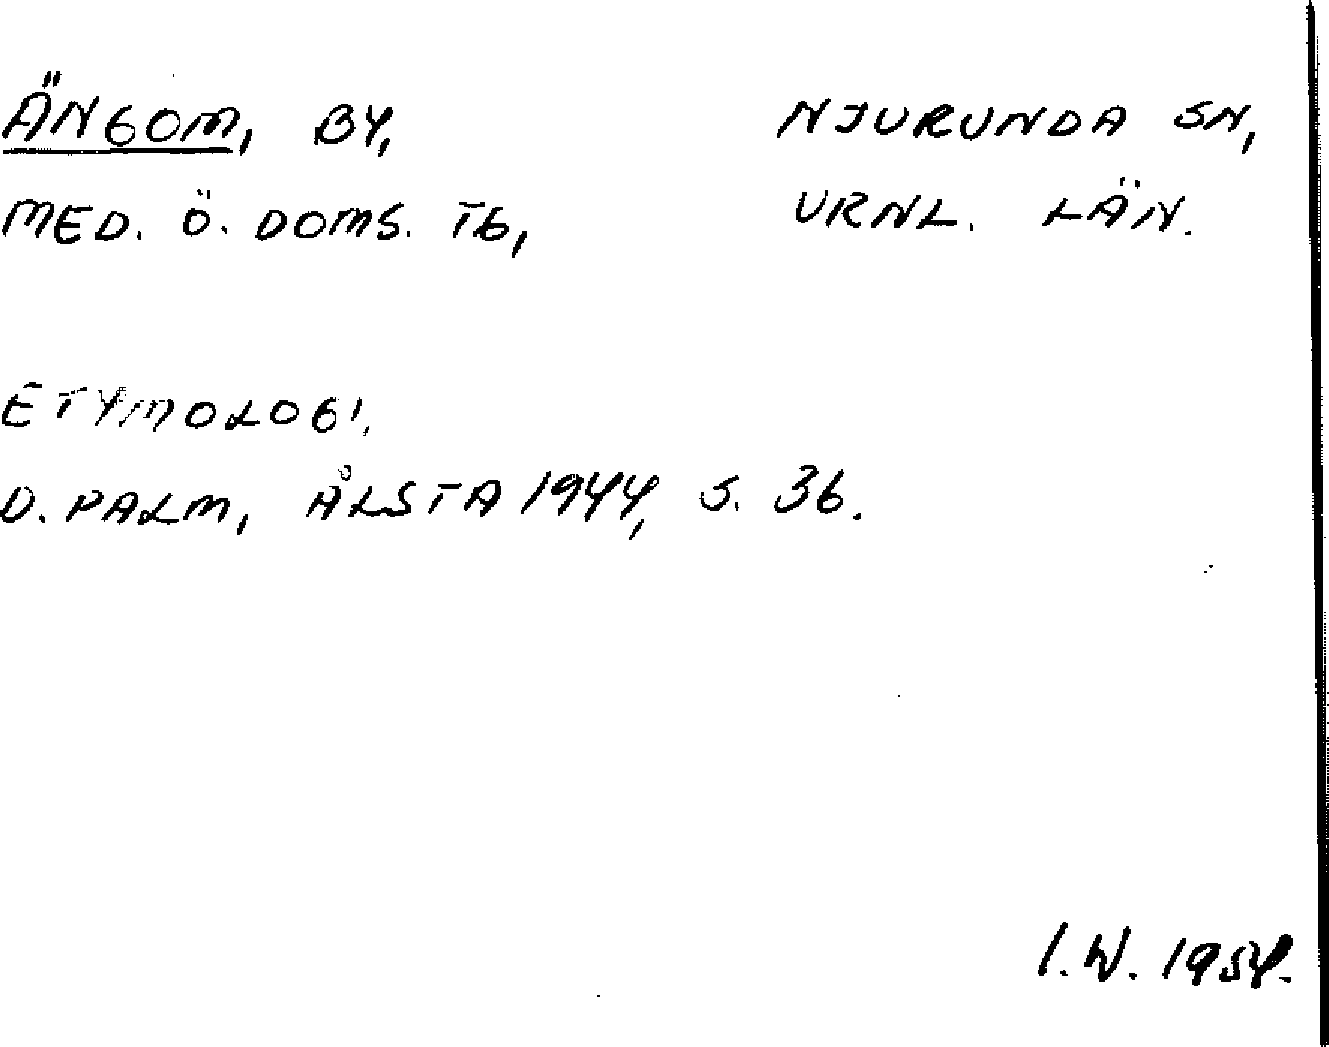 ÄNGOM, BY, NJURUNDA SN,
MED. Ö. DOMS. TG, VRNL. LÄN.
ETYMOLOGI,
D. PALM, ÅLSTA 1944, S. 36.
I.W. 1954.